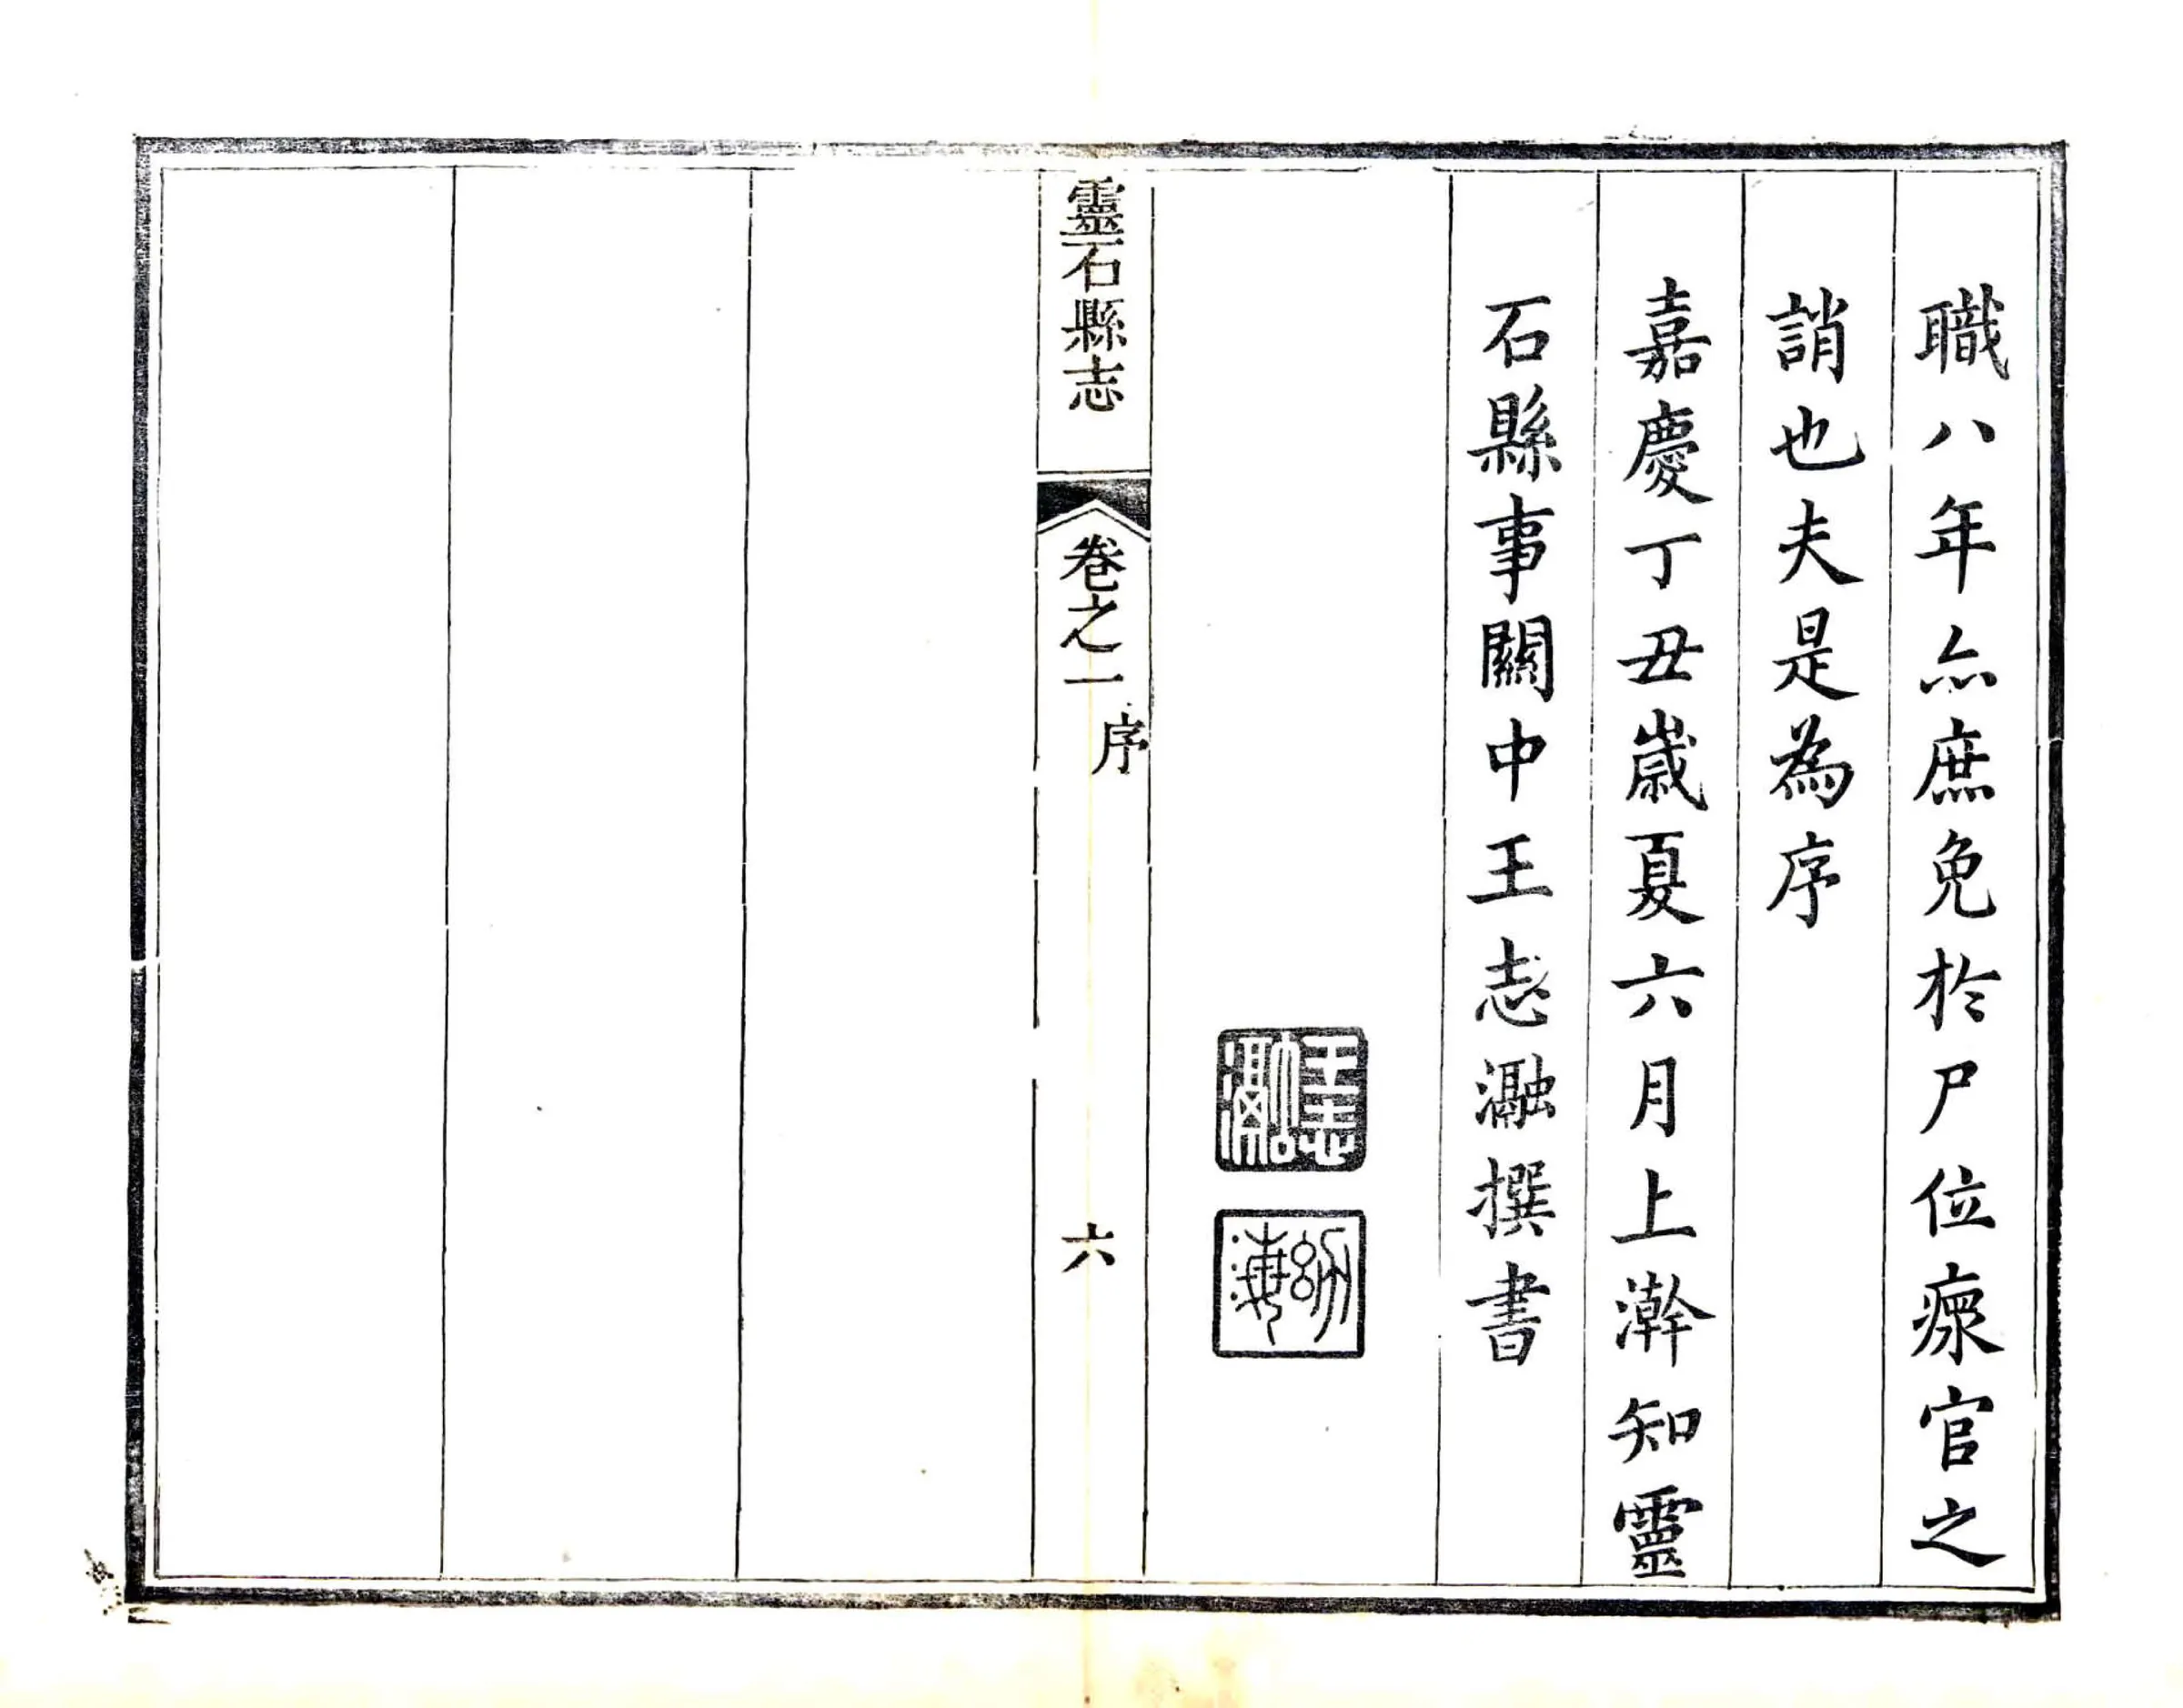 職八年亦庶免扵尸位瘝官之
誚也夫是為序
嘉慶丁丑嵗夏六月上澣知靈
石縣事關中王志瀜撰書
王志瀜
幼海
靈石縣志
卷之一
序
六